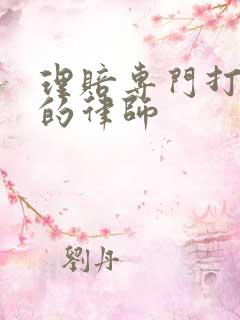 理賠專門打
的律師
劉丹